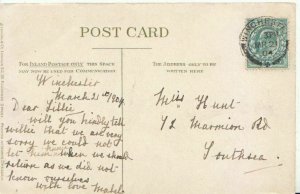 POST CARD
FOR INLAND POSTAGE ONLY THIS SPACE
MAY NOW BE USED FOR COMMUNICATION
THE ADDRESS ONLY TO BE
WRITTEN HERE
Winchester
March 21st 1904
Dear Lillie
will you kindly tell
Willie that we are very
sorry we could not
let them know when we should
return as we did not
know ourselves
with love
Miss Hunt
42 Marmion Rd
Southsea